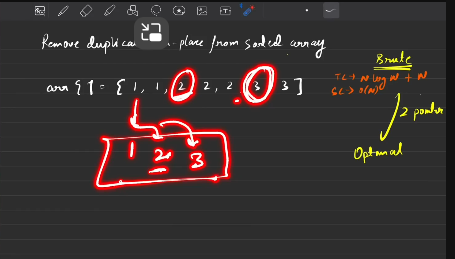 Remove duplica place from sorted array
arr [ ] = { 1, 1, 2 2, 2 3 3 ]
1 2 3
Brute
TC → N log N + N
SC → O(N)
2 pointer
Optimal